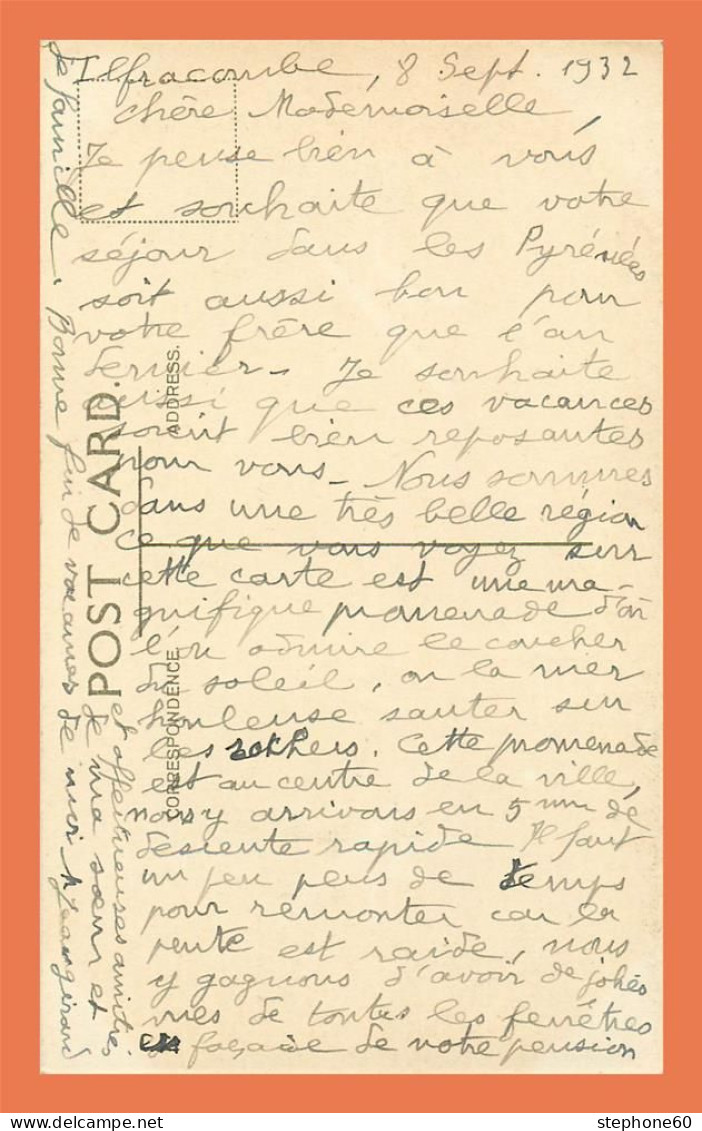 Ilfracombe, 8 Sept. 1932
Chère Mademoiselle,
Je pense bien à vous
et souhaite que votre
séjour dans les Pyrénées
soit aussi bon pour
votre frère que l'an
dernier - Je souhaite
aussi que ces vacances
soient bien reposantes
pour vous - Nous sommes
dans une très belle région
ce que vous voyez sur
cette carte est une ma-
gnifique promenade d'où
l'on admire le coucher
du soleil, ou la mer
houleuse sauter sur
les rochers. Cette promenade
est au centre de la ville,
nous y arrivons en 5 mn de
descente rapide Il faut
un peu plus de temps
pour remonter car la
pente est raide, nous
y gagnons d'avoir de jolies
vues de toutes les fenêtres
façade de votre pension
de famille. Bonne fin de vacances de
et affectueuses amitiés
de ma sœur et
POST CARD.
ADDRESS.
CORRESPONDENCE.
stephone60